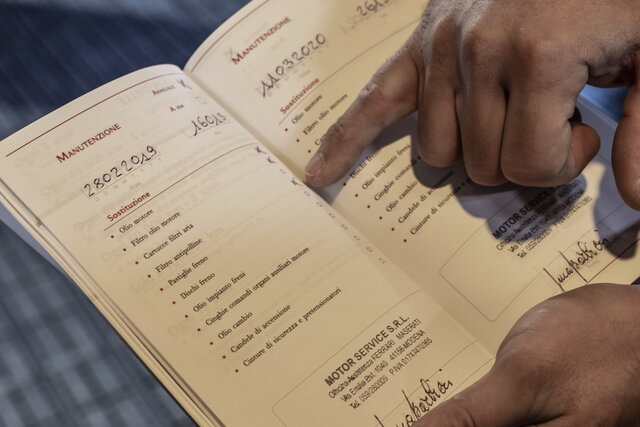 MANUTENZIONE
ANNUALE
A KM
28022019
16013
Sostituzione
Olio motore
Filtro olio motore
Cartucce filtri aria
Filtro antipolline
Pastiglie freno
Dischi freno
Olio impianto freni
Cinghie comandi organi ausiliari motore
Olio cambio
Candele di accensione
Cinture di sicurezza e pretensionatori
MOTOR SERVICE S.R.L.
Officina Assistenza FERRARI MASERATI
Via Emilia Est, 1040 41126-MODENA
MANUTENZIONE
11032020
Sostituzione
Olio motore
Filtro olio motore
Olio impianto freni
Cinghie comandi
Olio cambio
Candele di accensione
Cinture di sicurezza
MOTOR SERVICE